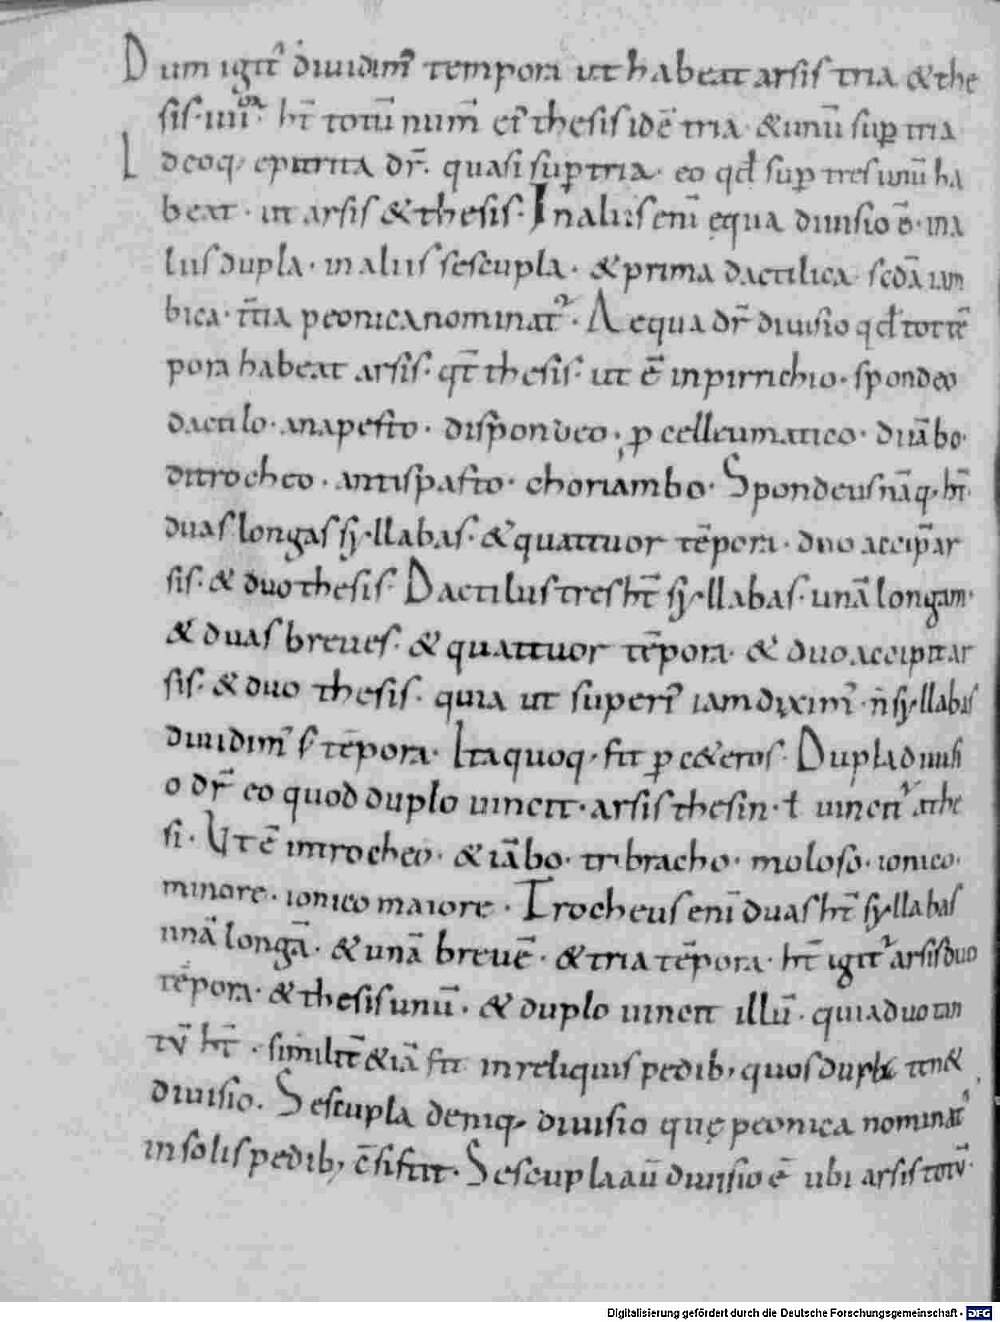 Dum igit᷒ diuidim᷒ tempora ut habeat arsis tria &the
sis·iiii^or· ht̄ totū num̄ ei᷒ thesis idē tria· &unū suꝑ tria
Ideoq; epitrita dr̄. quasi suꝑ tria· eo qđ suꝑ tres unū ha
beat· ut arsis &thesis· In aliis enī ęqua diuisio ē· in a
liis dupla· in aliis sescupla· &prima dactilica scđa iam
bica· t̄tia peonica nominat᷒· Aequa dr̄ diuisio qđ tot tē
pora habeat arsis· qt̄ thesis· ut ē in pirrichio· spondeo
dactilo· anapesto· dispondeo· ꝓcelleumatico· diiābo·
ditrocheo· antispasto· choriambo· Spondeus nāq; ht̄·
duas longas syllabas· &quattuor tēpora· duo accip̄ ar
sis· & duo thesis· Dactilus tres ht̄ syllabas· unā longam·
& duas breues· & quattuor tēpora· & duo accipit ar
sis· & duo thesis· quia ut superi᷒ iam dixim᷒· n̄ syllabas
diuidim᷒ s; tēpora· Ita quoq; fit ꝑ c&eros· Dupla diuisi
o dr̄ eo quod duplo uincit· arsis thesin· ł uincit᷒ a the
si· Ut ē in trocheo· & iābo· tribracho· moloso· ionico·
minore· ionico maiore· Trocheus enī duas ht̄ syllabas
unā longā· & unā breuē· & tria tēpora· ht̄ igit᷒ arsis duo
tēpora· & thesis unū· & duplo uincit illū· quia duo tan
tū ht̄· similit̄ & iā fit in reliquis pedib; quos dupla ten&
diuisio. Sescupla deniq; diuisio quę peonica nominat᷒
in solis pedib; c̄sistit· Sescupla aū diuisio ē ubi arsis totū·
Digitalisierung gefördert durch die Deutsche Forschungsgemeinschaft - DFG